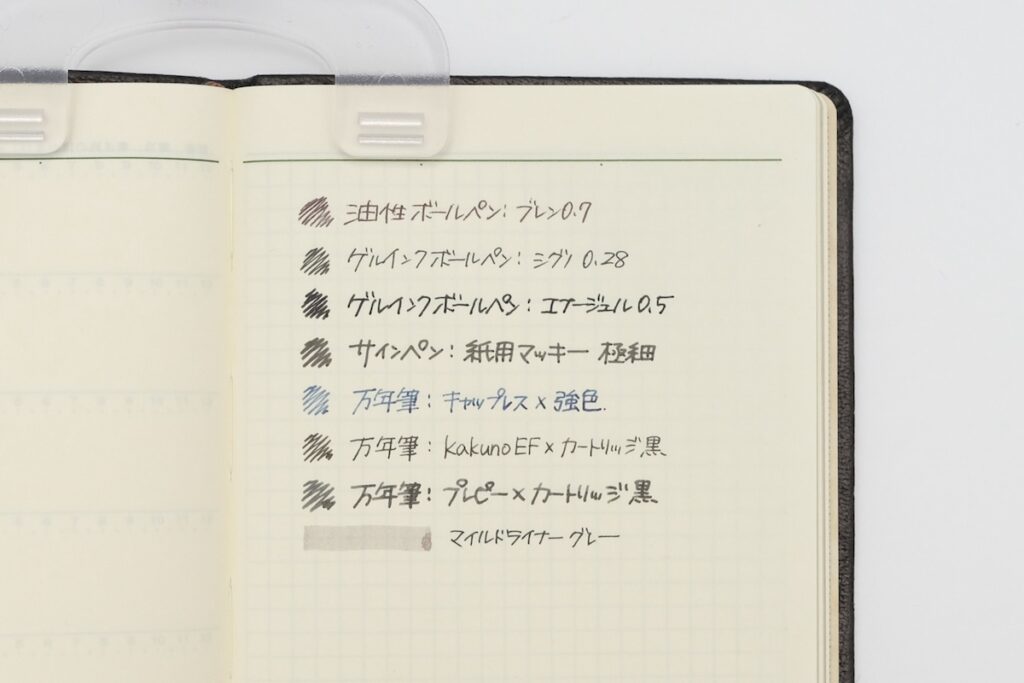 油性ボールペン：ブレン0.7
ゲルインクボールペン：シグノ 0.28
ゲルインクボールペン：エナージェル0.5
サインペン：紙用マッキー 極細
万年筆：キャップレス×強色.
万年筆：kakunoEF×カートリッジ黒
万年筆：プレピー×カートリッジ黒
マイルドライナーグレー